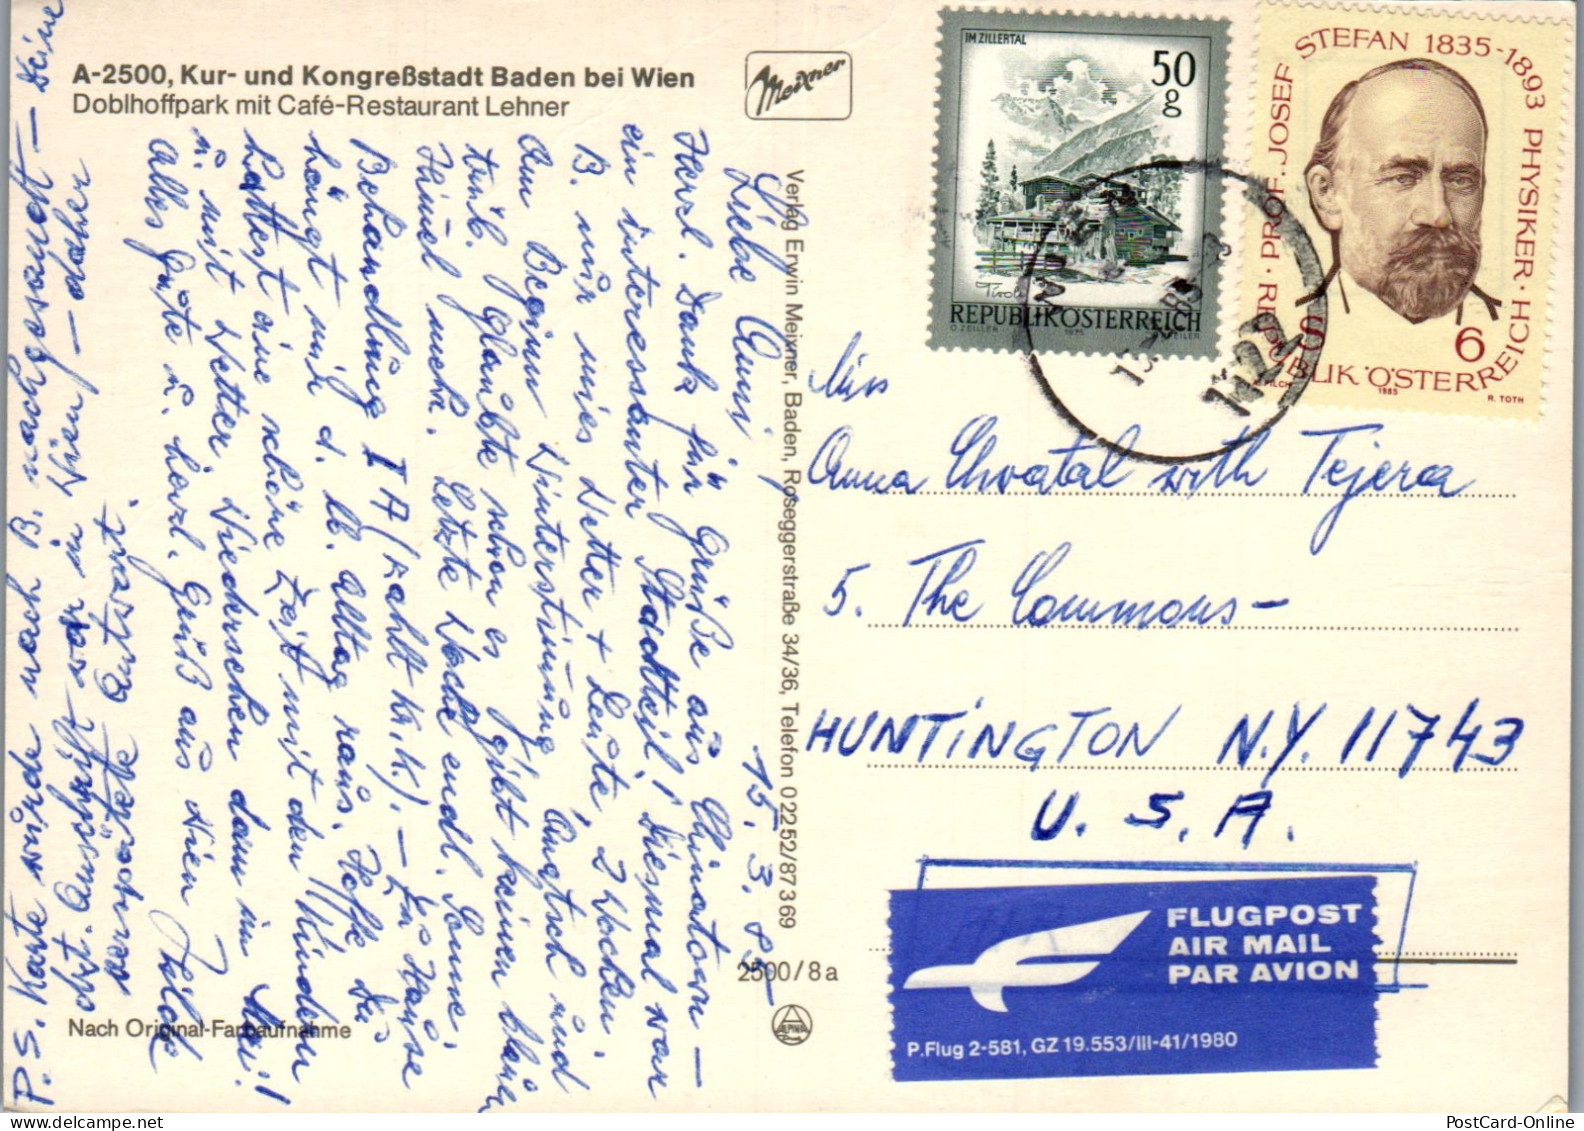 A-2500, Kur- und Kongreßstadt Baden bei Wien
Doblhoffpark mit Café-Restaurant Lehner
Meixner
15. 3. 85
Liebe Anni!
Herzl. Dank für Grüße aus Chinatown –
ein interessanter Stadtteil! Diesmal war
B. mir mies Wetter + Leute, 2 Wochen.
Am Beginn Winterstimmung, Quatsch und
trüb. Glaubte schon es gibt keinen blauen
Himmel mehr. Letzte Woche endl. Sonne.
Behandlung I A (zahlt Kr.K.). – Zu Hause
hängt mir d. lb. Alltag raus. Hoffe Du
hattest eine schöne Zeit mit den Kindern
u. mit Wetter. Wiedersehen dann im Mai!
Alles Gute u. herzl. Gruß aus Wien Hilde
P.S. Karte wurde nach B. nachgesandt – Deine
Anschrift war in Wien – daher
verspätete Antwort.
Nach Original-Farbaufnahme
Verlag Erwin Meixner, Baden, Roseggerstraße 34/36, Telefon 02252/87369
2500/8a
ALPINA
IM ZILLERTAL
50
g
Tirol
REPUBLIK ÖSTERREICH
O. ZEILLER 1975
REG.-PROF. JOSEF STEFAN 1835-1893 PHYSIKER
REPUBLIK ÖSTERREICH
S 6
PILCH 1985 R. TOTH
1422
Miss
Anna Chvatal with Tejera
5. The Commons –
HUNTINGTON N.Y. 11743
U. S. A.
FLUGPOST
AIR MAIL
PAR AVION
P.Flug 2-581, GZ 19.553/III-41/1980
PostCard-Online
www.delcampe.net